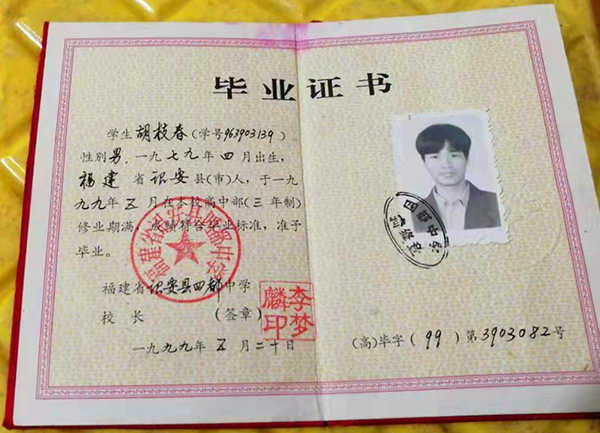 毕业证书
学生 胡枝春 (学号963903139)
性别男,一九七九年四月出生,
福建省诏安县(市)人,于一九
九九年五月在本校高中部(三年制)
修业期满,成绩符合毕业标准,准予
毕业。
福建省诏安县四都中学
校长 (签章)
李梦麟印
一九九九年五月二十日
福建省诏安县四都中学
(高)毕字(99)第3903082号